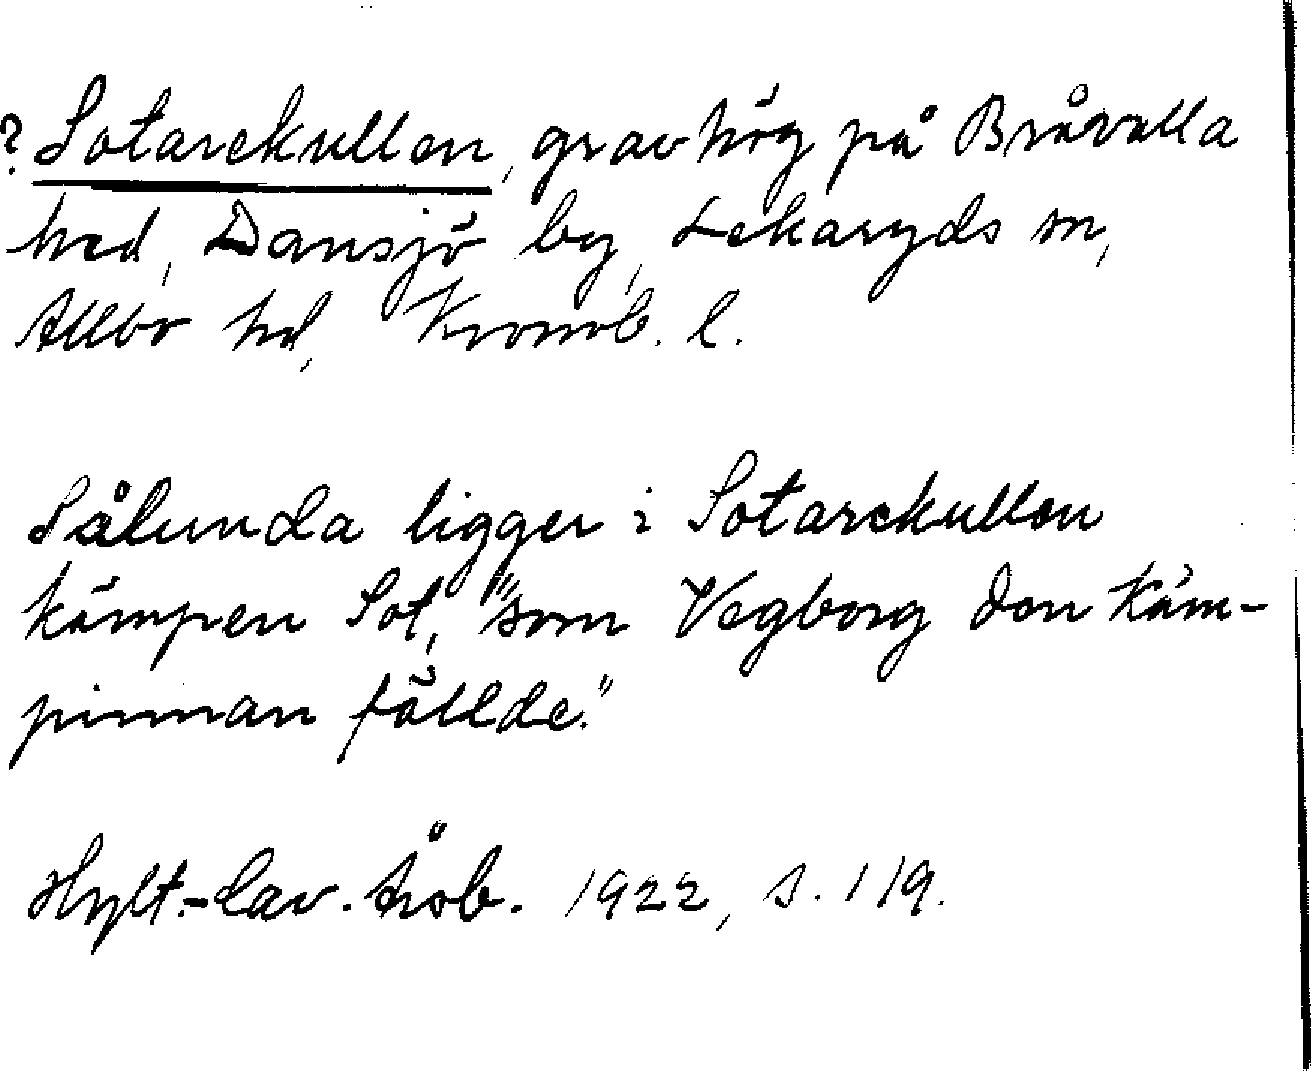 ? Sotarekullen, gravhög på Bråvalla
hed, Dansjö by, Lekaryds sn,
Allbo hd, Kronob. l.
Sålunda ligger i Sotarekullen
kämpen Sot, "som Vegborg den käm-
pinnan fällde."
Hylt.-Cav. Årsb. 1922, s. 119.